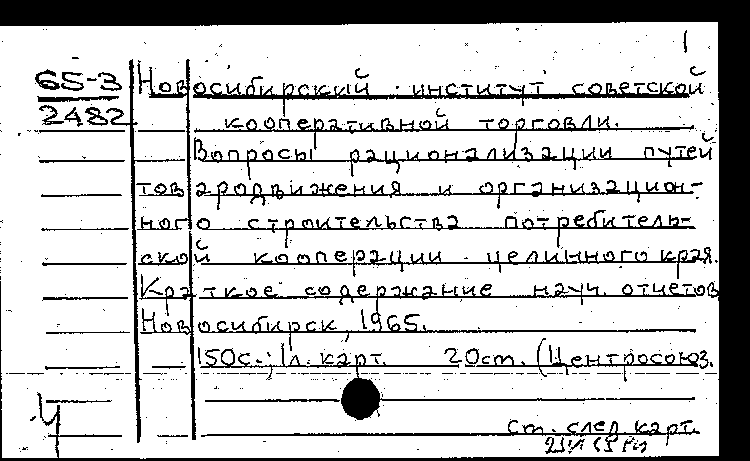 1
65-3 Новосибирский институт советской
2482 кооперативной торговли.
Вопросы рационализации путей
товародвижения и организацион-
ного строительства потребитель-
ской кооперации целинного края.
Краткое содержание науч. отчетов
Новосибирск, 1965.
150с.; 1л. карт. 20ст. (Центросоюз.
Ч
См. след. карт.